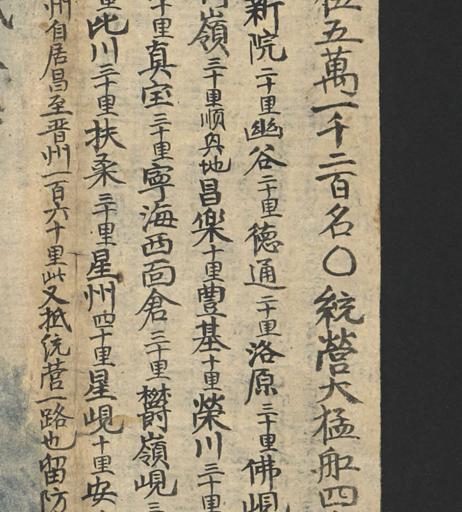 五萬一千二百名〇統營大猛船四
新院二十里幽谷二十里德通二十里洛原三十里佛峴
嶺三十里順興地昌樂十里豊基十里榮川三十里
十里真宝三十里寧海西面倉三十里欝嶺峴三
里比川三十里扶桒三十里星州四十里星峴十里安
州自居昌至晋州一百六十里此又抵統营一路也留防